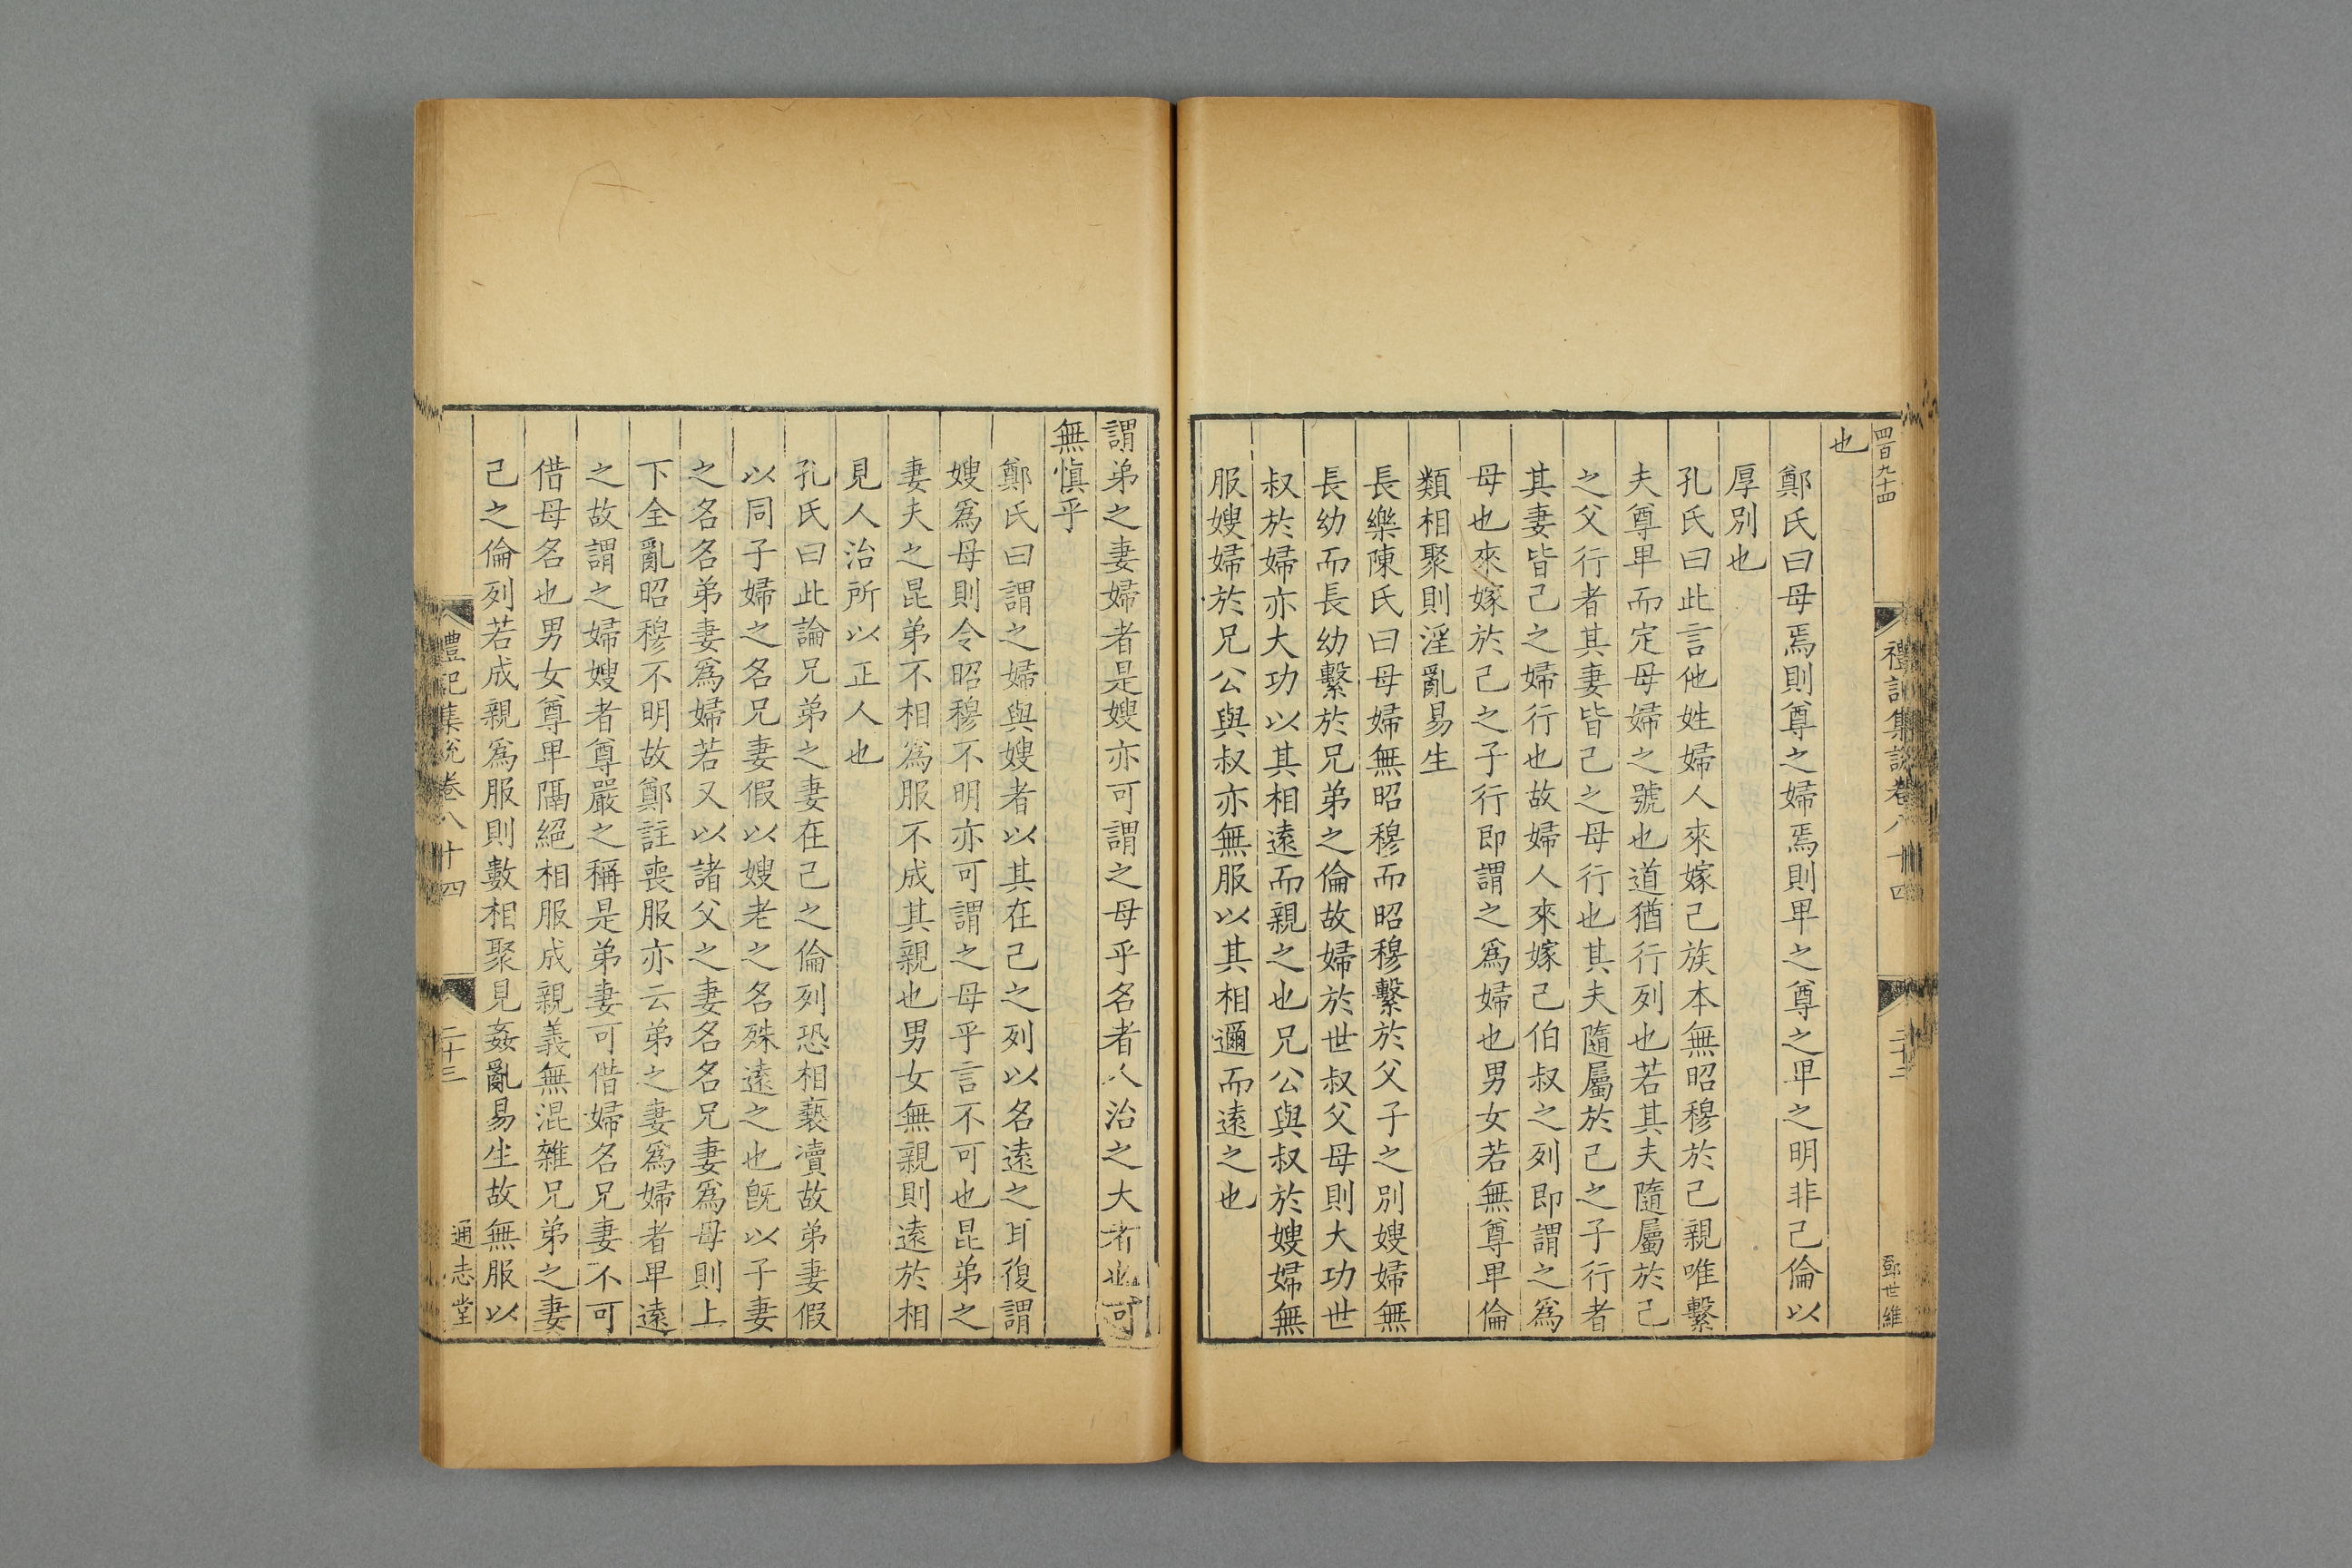 四百九十四
禮記集說卷八十四
二十三
鄧世維
也
鄭氏曰母焉則尊之婦焉則卑之尊之卑之明非己倫以
厚別也
孔氏曰此言他姓婦人來嫁己族本無昭穆於己親唯繫
夫尊卑而定母婦之號也道猶行列也若其夫隨屬於己
之父行者其妻皆己之母行也其夫隨屬於己之子行者
其妻皆己之婦行也故婦人來嫁己伯叔之列即謂之爲
母也來嫁於己之子行即謂之爲婦也男女若無尊卑倫
類相聚則淫亂易生
長樂陳氏曰母婦無昭穆而昭穆繫於父子之別嫂婦無
長幼而長幼繫於兄弟之倫故婦於世叔父母則大功世
叔於婦亦大功以其相遠而親之也兄公與叔於嫂婦無
服嫂婦於兄公與叔亦無服以其相邇而遠之也
謂弟之妻婦者是嫂亦可謂之母乎名者人治之大者也可
無慎乎
鄭氏曰謂之婦與嫂者以其在己之列以名遠之耳復謂
嫂爲母則令昭穆不明亦可謂之母乎言不可也昆弟之
妻夫之昆弟不相爲服不成其親也男女無親則遠於相
見人治所以正人也
孔氏曰此論兄弟之妻在己之倫列恐相褻瀆故弟妻假
以同子婦之名兄妻假以嫂老之名殊遠之也旣以子妻
之名名弟妻爲婦若又以諸父之妻名名兄妻爲母則上
下全亂昭穆不明故鄭註喪服亦云弟之妻爲婦者卑遠
之故謂之婦嫂者尊嚴之稱是弟妻可借婦名兄妻不可
借母名也男女尊卑隔絕相服成親義無混雜兄弟之妻
己之倫列若成親爲服則數相聚見姦亂易生故無服以
禮記集說卷八十四
二十三
通志堂